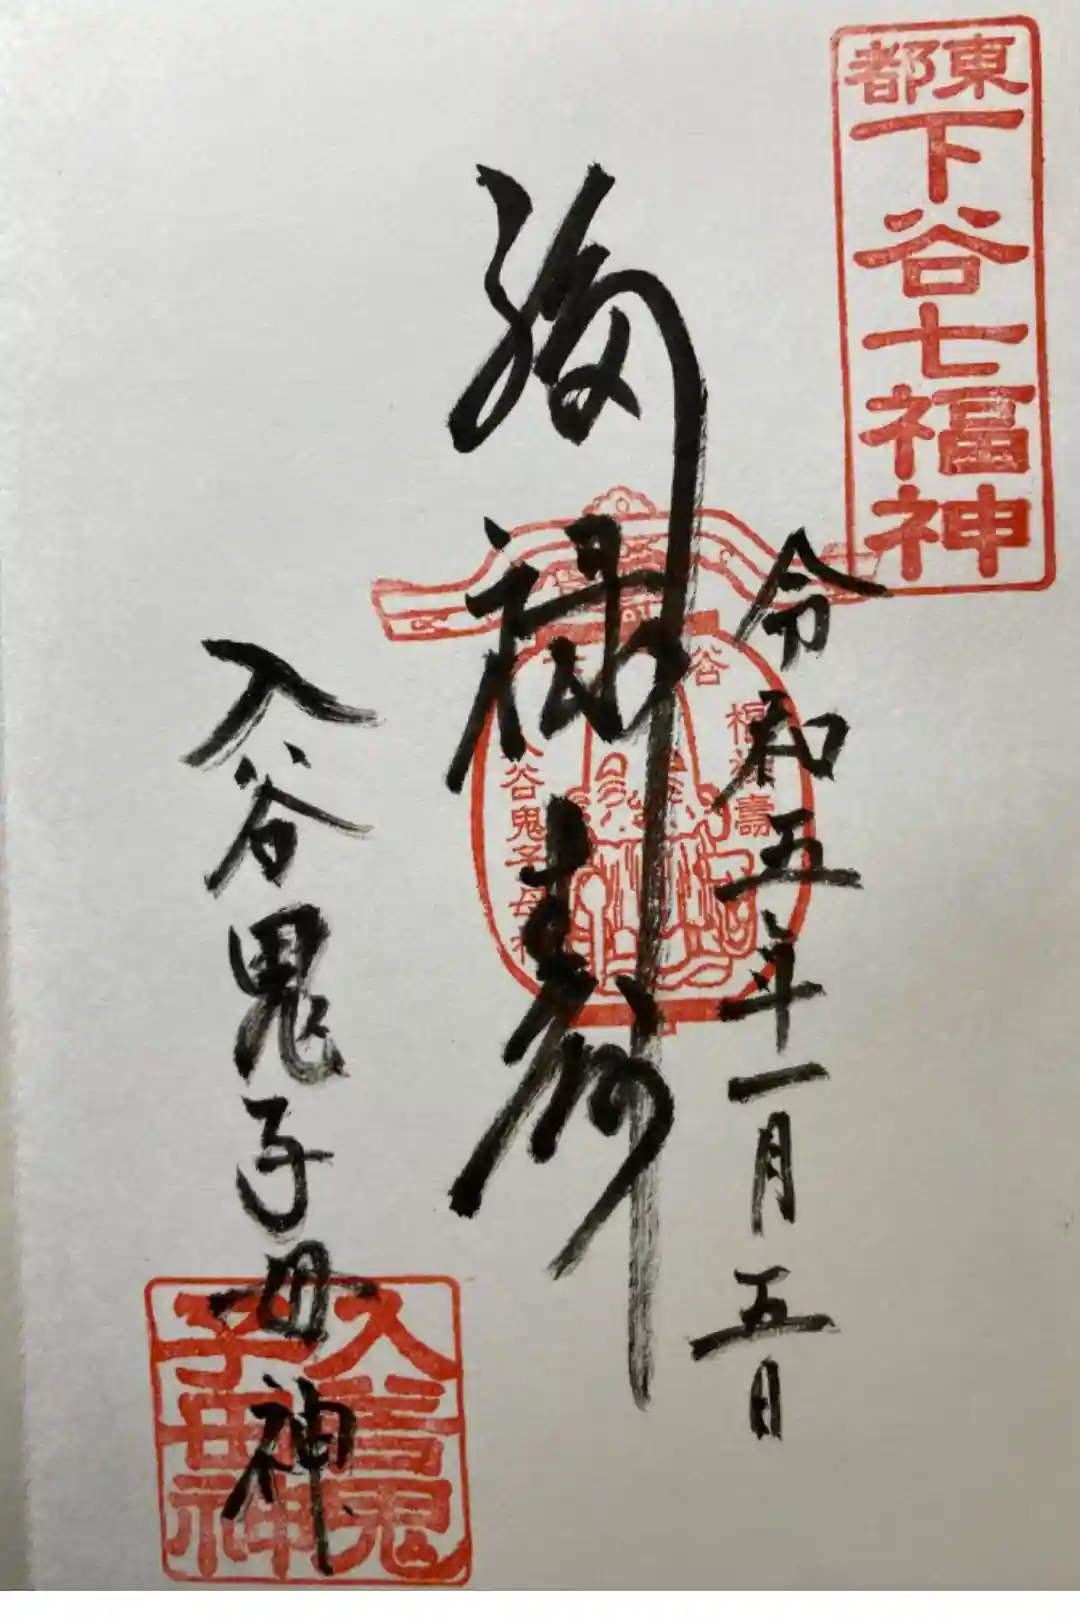 東都
下谷七福神
令和五年一月五日
福禄寿
福禄壽
入谷鬼子母神
入谷鬼子母神
入谷鬼子母神